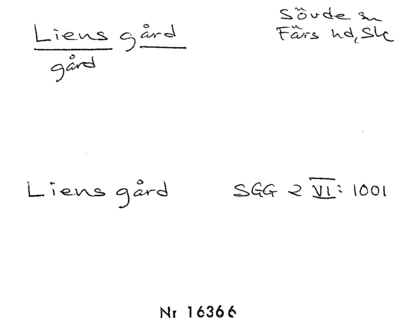 Liens gård
gård
Sövde sn
Färs hd, Sk
Liens gård
SGG 2 VI: 1001
Nr 16366